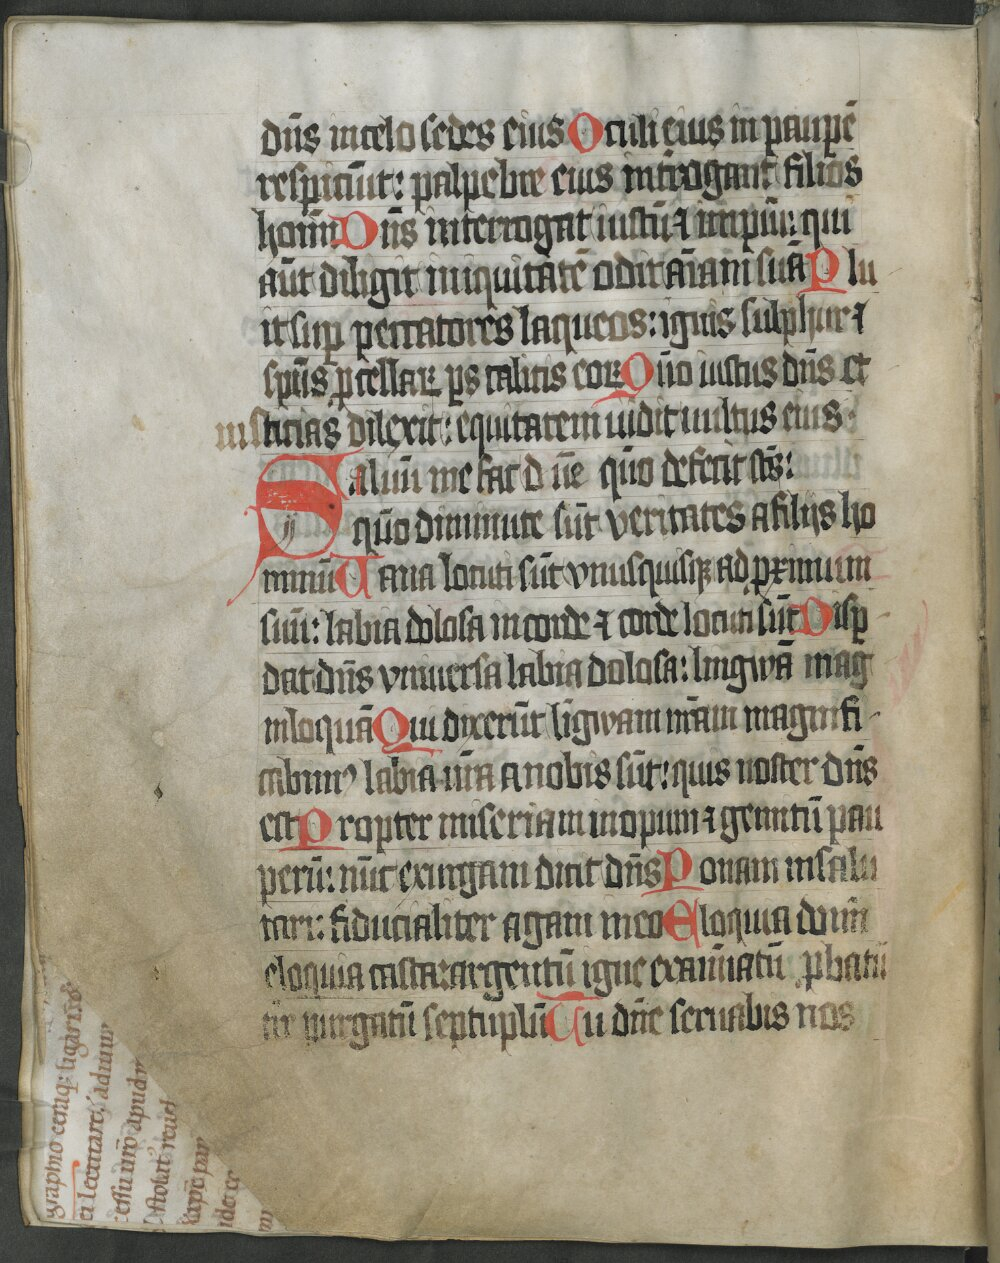 dn̄s in celo sedes eius Oculi eius in paup̄e
respiciūt: palpebre eius int̄rogant filios
hoīm Dn̄s interrogat iustū ⁊ impiū: qui
aūt diligit iniquitatē odit aīam suā Plu
it sup̄ peccatores laqueos: ignis sulphur ⁊
sp̄us ꝓcellaꝝ ps calicis eoꝝ Qūo iustus dn̄s et
iusticias dilexit: equitatem uidit uultus eius
Saluū me fac dn̄e qūo defecit sc̄s:
qūo diminute sūt veritates a filijs ho
minū Uana locuti sūt vnusquisqꝫ ad ꝓximum
suū: labia dolosa in corde ⁊ corde locuti sūt Disp̄
dat dn̄s vniuersa labia dolosa: lingwā mag
niloquā Qui dixerūt līgwam nr̄am magnifi
cabimꝰ labia nr̄a a nobis sūt: quis noster dn̄s
est Propter miseriam inopum ⁊ gemitū pau
perū: nūc exurgam dicit dn̄s Ponam in salu
tari: fiducialiter agam in eo Eloquia domī
eloquia casta: argentū igne exaīatū ꝓbatū
tir̄ purgatū septuplū Tu dn̄e seruabis nos